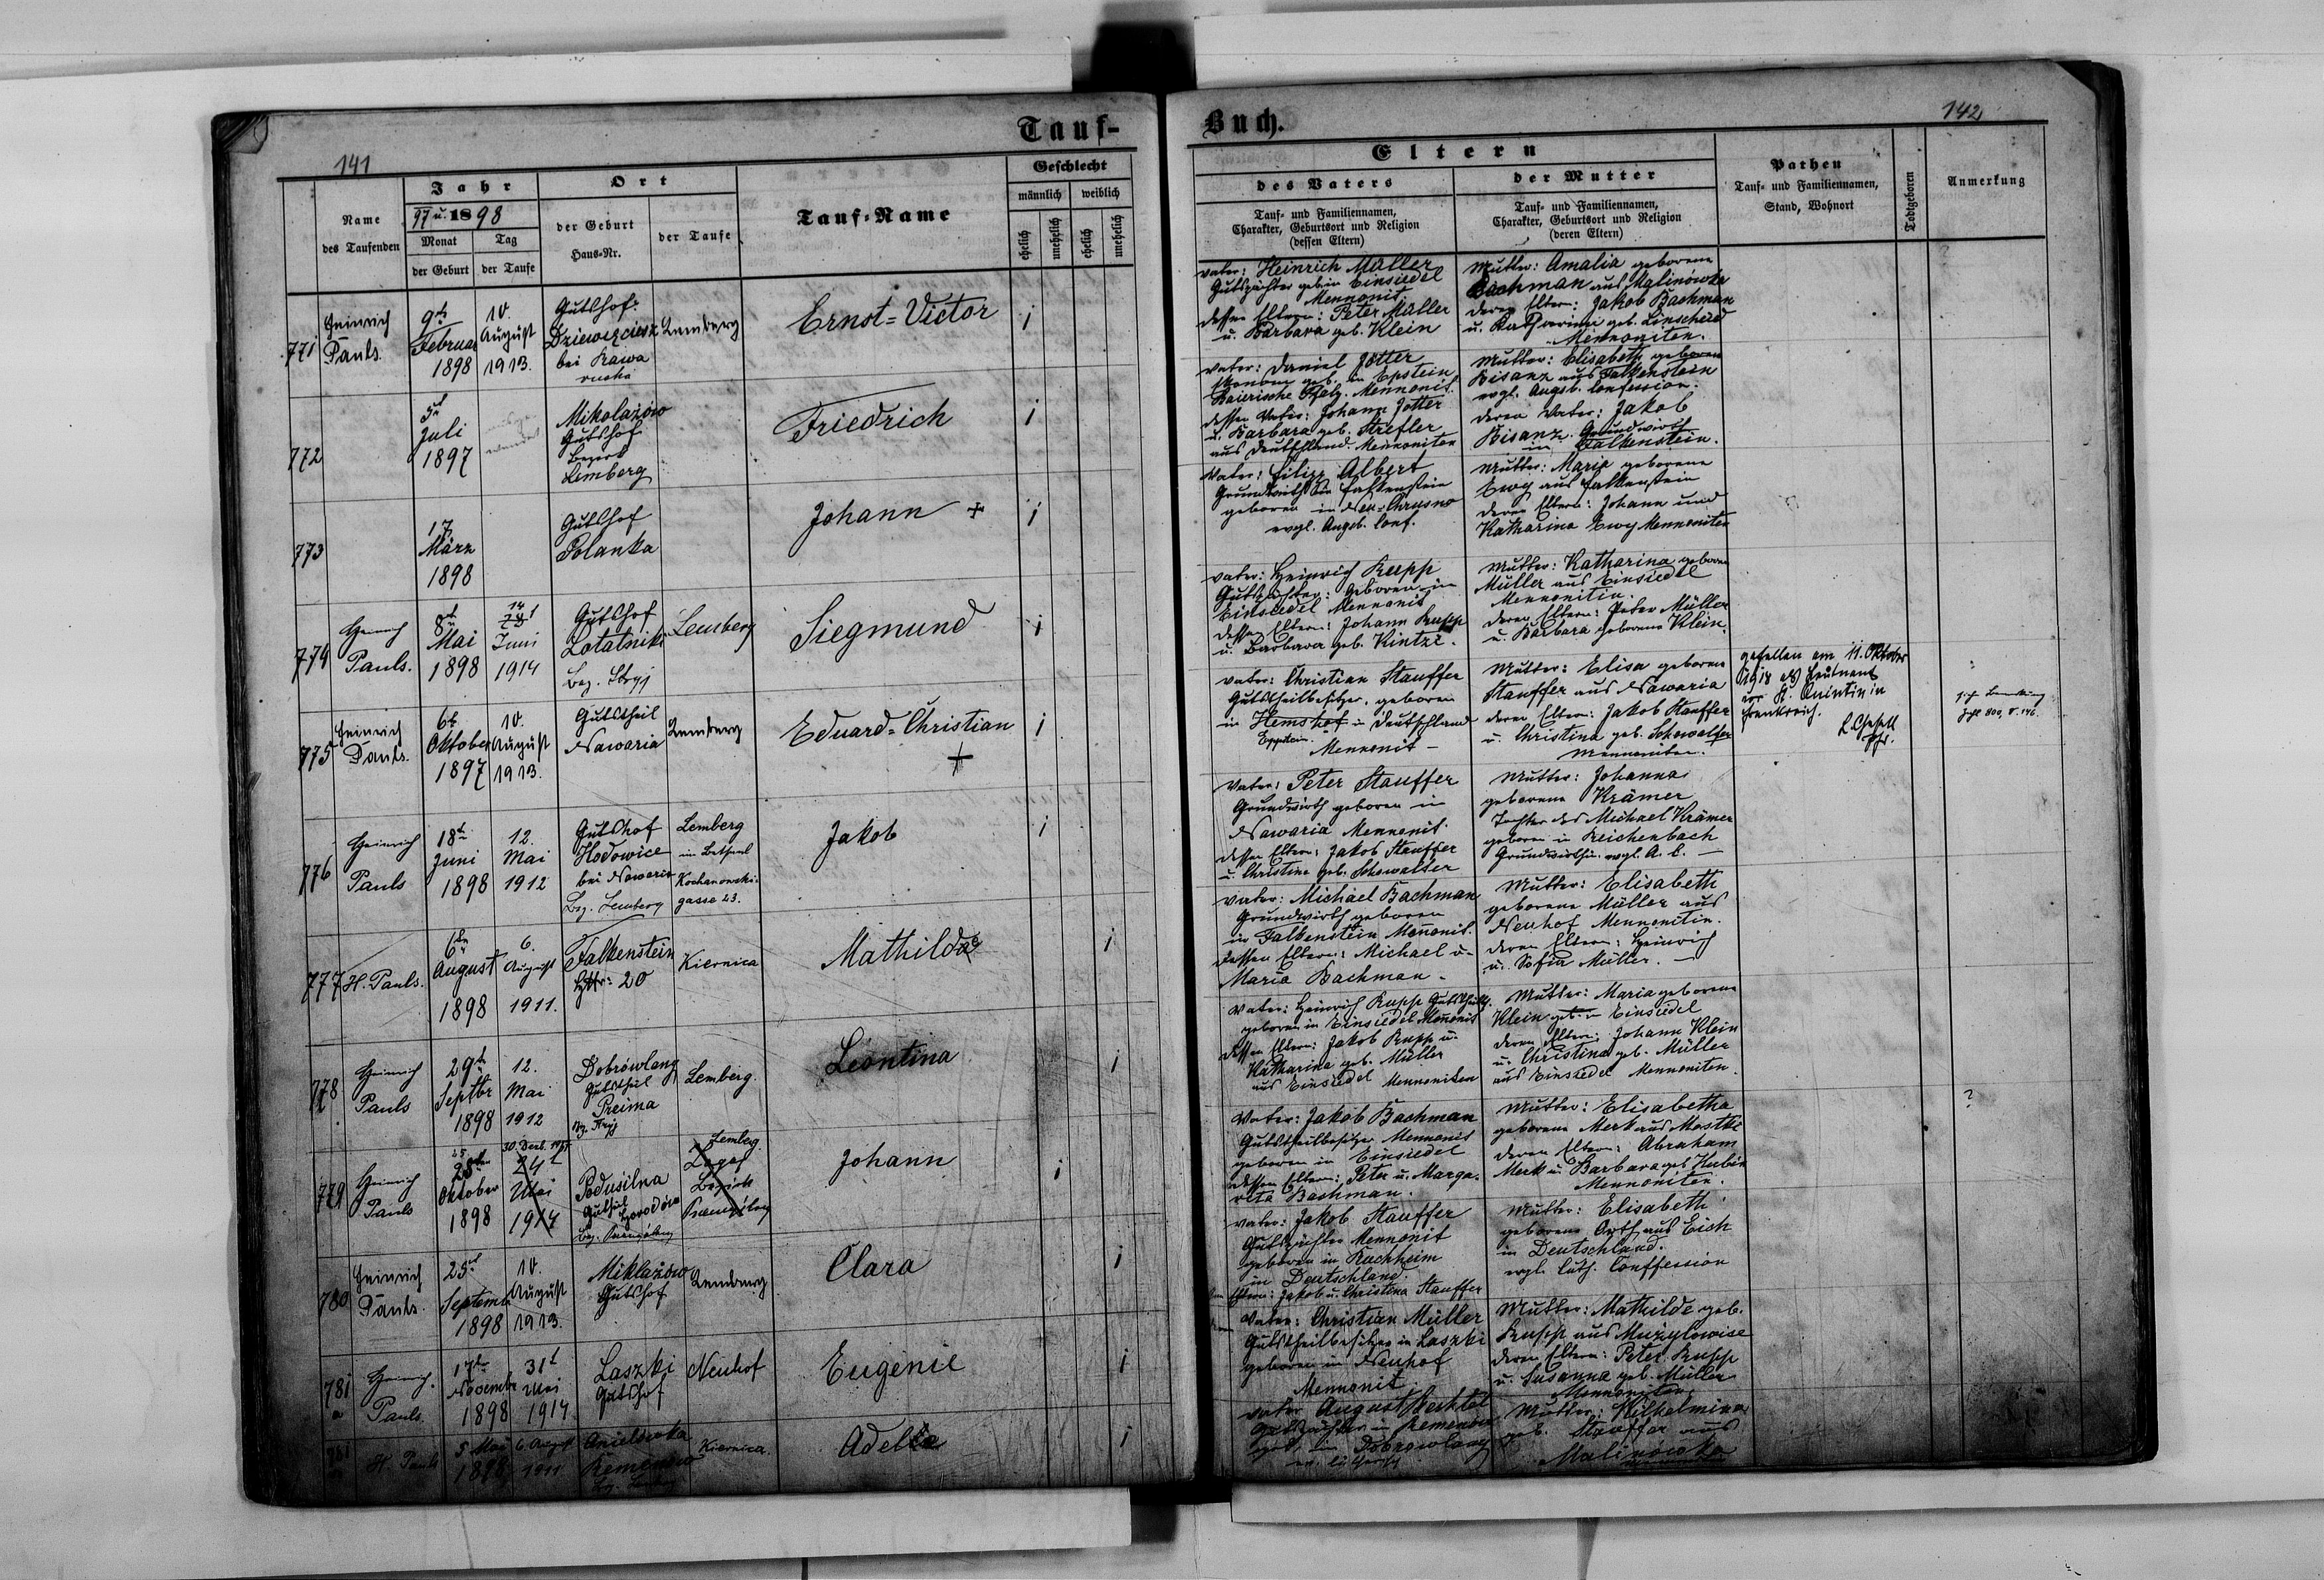 141
Tauf-
Name
des Taufenden
Jahr
97 u. 1898
Monat
der Geburt
Tag
der Taufe
Ort
der Geburt
Haus-Nr.
der Taufe
Tauf-Name
Geschlecht
männlich
weiblich
ehelich
unehelich
ehelich
unehelich
771
Heinrich
Pauls.
9t
Februar
1898
10.
August
1913.
Gutshof:
Dziewięcierz
bei Rawa
ruska
Lemberg
Ernst-Victor
1
772
5t
Juli
1897
Mikolajów
Gutshof
Bezirk
Lemberg
Friedrich
1
773
17.
März
1898
Gutshof
Polanka
Johann +
1
774
Heinrich
Pauls.
8t
Mai
1898
14
Juni
1914
Gutshof
Lotatniki
Bez. Stryj
Lemberg
Siegmund
1
775
Heinrich
Pauls.
6t
Oktober
1897
10.
August
1913.
Gutstheil
Nawaria
Lemberg
Eduard-Christian
+
1
776
Heinrich
Pauls
18t
Juni
1898
12.
Mai
1912
Gutshof
Hodowice
bei Nawaria
Bez. Lemberg
Lemberg
im Betsaal
Kochanowski-
gasse 23.
Jakob
1
777
H. Pauls.
6tn
August
1898
6.
August
1911.
Falkenstein
20
Kiernica
Mathilda
1
778
Heinrich
Pauls
29t
Septbr
1898
12.
Mai
1912
Dobrówlany
Gutstheil
Preima
Bz. Stryj
Lemberg.
Leontina
1
779
Heinrich
Pauls
25
Oktober
1898
30. Dezb.
24t
Mai
1914
Podusilna
Bez. Przemyślany
Lemberg.
Bezirk
Przemyślany
Johann
1
780
Heinrich
Pauls.
25t
Septembr
1898
10.
August
1913.
Miklażów
Gutshof
Lemberg
Clara
1
781
a
Heinrich.
Pauls.
17t
Novembr
1898
31t
Mai
1914.
Laszki
Gutshof
Neuhof
Eugenie
1
781
H. Pauls
5 Mai
1898
6 August
1911
Anielówka
Remenów
Bez. Lemberg
Kiernica.
Adele
1
142
Buch.
Eltern
des Vaters
Tauf- und Familiennamen,
Charakter, Geburtsort und Religion
(dessen Eltern)
der Mutter
Tauf- und Familiennamen,
Charakter, Geburtsort und Religion
(deren Eltern)
Pathen
Tauf- und Familiennamen,
Stand, Wohnort
Todtgeboren
Anmerkung
Vater: Heinrich Müller
Gutspächter geb. in Einsiedel
Mennonit
dessen Eltern: Peter Müller
u. Barbara geb. Klein
Mutter: Amalia geborene
Bachman aus Malinówka
deren Eltern: Jakob Bachman
u. Katharina geb. Linscheid
Mennoniten.
Vater: Daniel Jotter
Ökonom geb. in Epstein
Baierische Pfalz. Mennonit.
dessen Vater: Johann Jotter
u. Barbara geb. Strefler
aus Deutschland. Mennoniten
Mutter: Elisabeth geboren
Bisanz aus Falkenstein
evgl. Augsb. Confession.
deren Vater: Jakob
Bisanz. Grundwirth
in Falkenstein.
Vater: Filipp Albert
Grundwirth in Falkenstein
geboren in Neu-Chrusno
evgl. Augsb. Conf.
Mutter: Maria geborene
Ewy aus Falkenstein
deren Eltern: Johann und
Katharina Ewy Mennoniten
Vater: Heinrich Rupp
Gutspächter: Geboren in
Einsiedel Mennonit
dessen Eltern: Johann Rupp
u. Barbara geb. Kintzi.
Mutter: Katharina geboren
Müller aus Einsiedel
Mennonitin.
deren Eltern: Peter Müller
u. Barbara geborene Klein.
Vater: Christian Stauffer
Gutstheilbesitzer, geboren
in Hemshof in Deutschland
Eppstein.
Mennonit -
Mutter: Elisa geborene
Stauffer aus Nawaria
deren Eltern: Jakob Stauffer
u. Christina geb. Schowalter
Mennoniten.
gefallen am 11. Oktober
1918 als Leutnant
vor St. Quintin in
Frankreich.
Zahl 800, S. 146.
Vater: Peter Stauffer
Grundwirth geboren in
Nawaria Mennonit.
dessen Eltern: Jakob Stauffer
u. Christina geb. Schowalter
Mutter: Johanna
geborene Krämer
Tochter des Michael Krämer
geboren in Reichenbach
Grundwirthin. evgl. A. C. —
Vater: Michael Bachman
Grundwirth geboren
in Falkenstein Mennonit.
dessen Eltern: Michael u
Maria Bachman.
Mutter: Elisabeth
geborene Müller aus
Neuhof Mennonitin.
deren Eltern: Heinrich
u. Sofia Müller. —
Vater: Heinrich Rupp
geboren in Einsiedel Mennonit
dessen Eltern: Jakob Rupp u.
Katharina geb. Müller
aus Einsiedel Mennoniten
Mutter: Maria geborene
Klein Einsiedel
deren Eltern: Johann Klein
u. Christina geb. Müller
aus Einsiedel Mennoniten.
Vater: Jakob Bachman
Gutstheilbesitzer Mennonit
geboren in Einsiedel
dessen Eltern: Peter u. Marga-
reta Bachman.
Mutter: Elisabetha
geborene Merk aus Mostki
deren Eltern: Abraham
Merk u. Barbara geb. Hubin
Mennoniten.
?
Vater: Jakob Stauffer
Gutspächter Mennonit
geboren in Ruchheim
in Deutschland.
Eltern: Jakob u. Christina Stauffer
Mutter: Elisabeth
geborene Orth aus Eich
in Deutschland.
evgl. luth. Conffession
Vater: Christian Müller
Gutstheilbesitzer in Laszki
geboren in Neuhof
Mennonit.
Mutter: Mathilde geb.
Rupp aus Mużylowice
deren Eltern: Peter Rupp
u. Susanna geb. Müller
Mennoniten
Vater August Bechtel
Gutspächter in Remenów
geb. in Dobrowlany
Mutter: Wilhelmina
geb. Stauffer aus
Malinówka